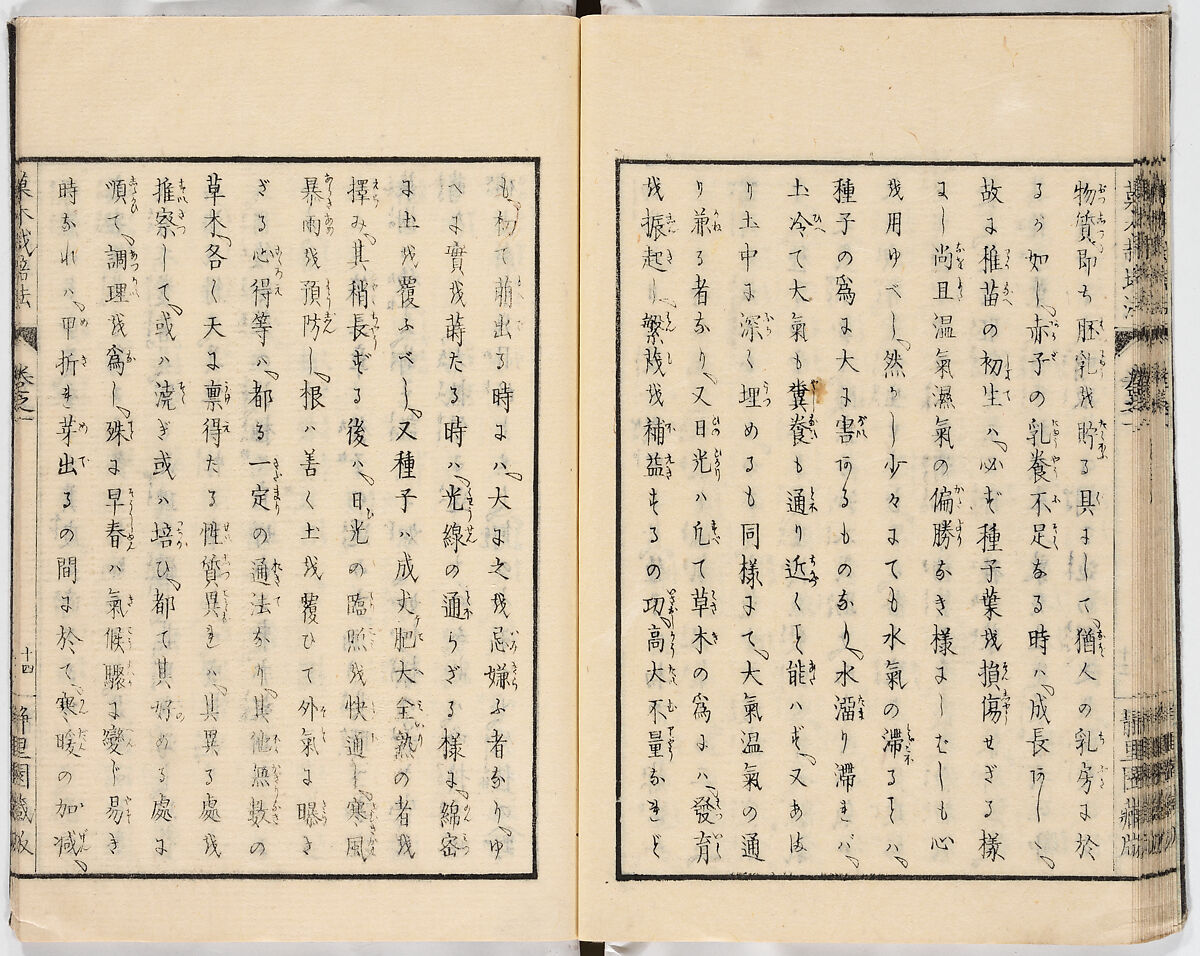 物質即ち胚乳を貯る具にして猶人の乳房に於
るが如し、赤子の乳養不足なる時ハ、成長あし、
故に稚苗の初生ハ、必ず種子葉を損傷せざる様
にし尚且温氣濕氣の偏勝なき様にしむしも心
を用ゆべし、然るし少々にても水氣の滯るゝハ、
種子の爲に大に害あるものなり、水溜り滯れバ、
土冷て大氣も糞養も通り近くと能ハず、又あま
り土中に深く埋めるも同様にて、大氣温氣の通
り兼る者なり、又日光ハ凡て草木の爲にハ、發育
を振起し、繁茂を補益するの功、高大不量なれど
も、初て萌出る時にハ、大に之を忌嫌ふ者なり、ゆ
へに實を蒔たる時ハ、光線の通らざる様に、綿密
に土を覆ふべし、又種子ハ成丈肥大全熟の者を
擇み、其稍長ずる後ハ、日光の臨照を快通し、寒風
暴雨を預防し、根ハ善く土を覆ひて外氣に曝さ
ざる心得等ハ、都る一定の通法なり、其他無數の
草木、各く天に稟得たる性質異れハ、其異る處を
推察して、或ハ澆ぎ或ハ培ひ、都て其好める處に
順て、調理を爲し、殊に早春ハ氣候驟に變じ易き
時なれハ、甲折れ芽出るの間に於て、寒暖の加減、
菓木栽培法
卷之一
十四
静里園藏版